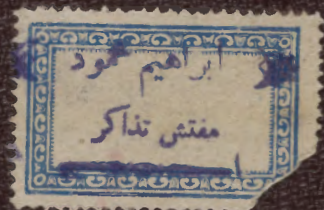 ابراهيم محمود
مفتش تذاكر